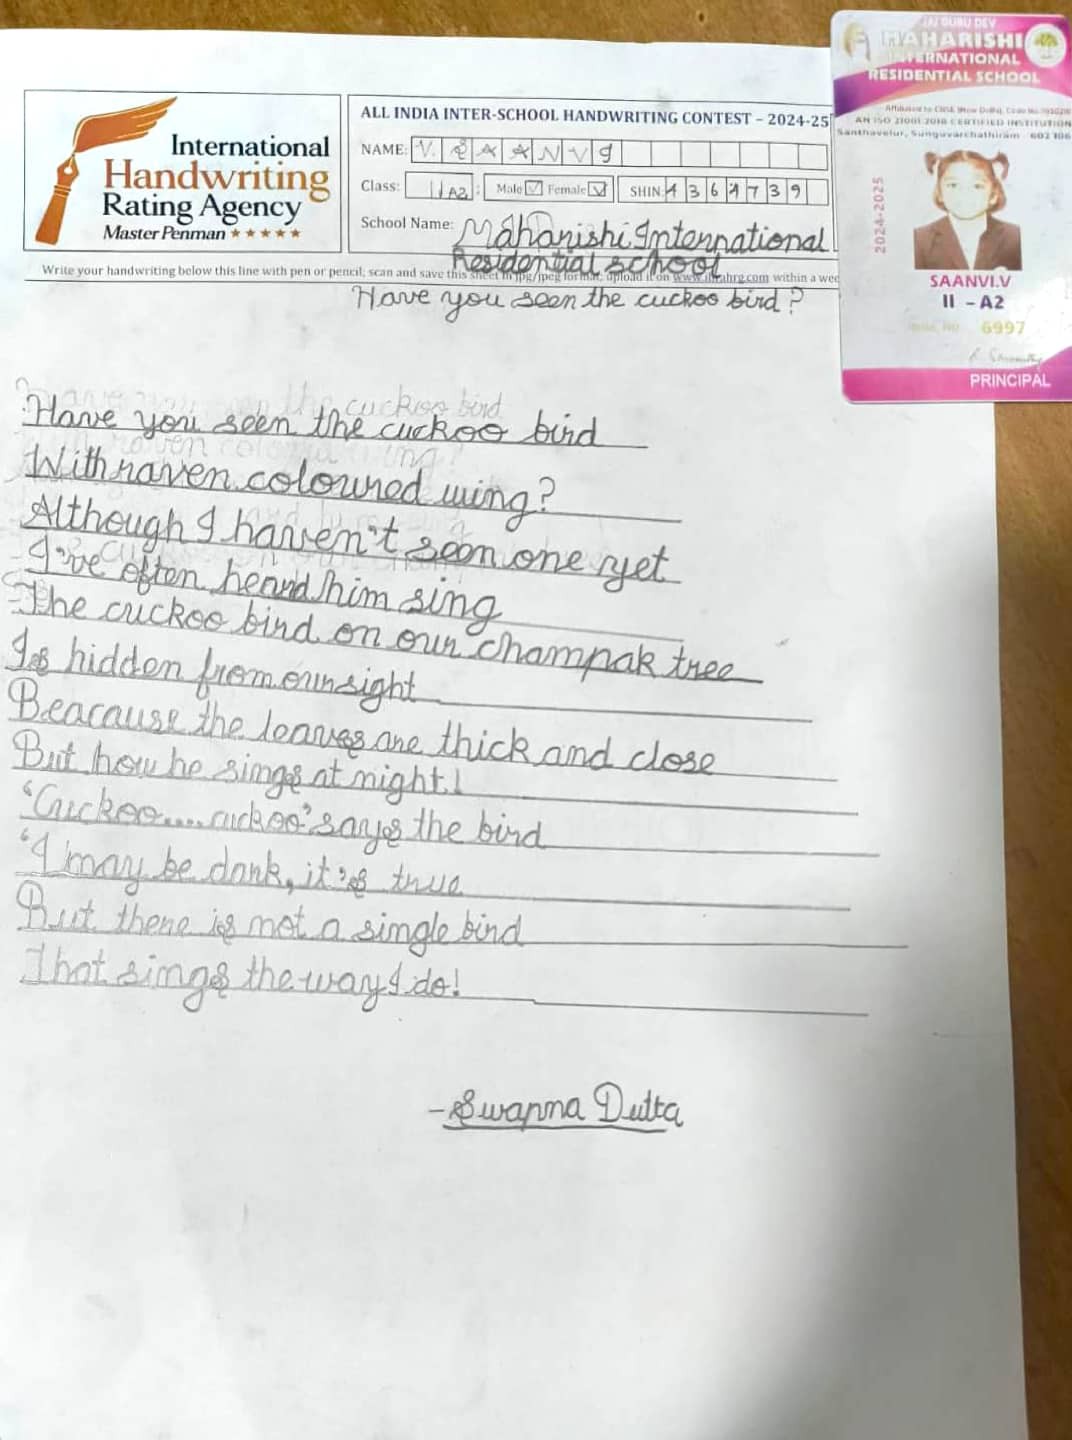 International
Handwriting
Rating Agency
Master Penman ★★★★★
ALL INDIA INTER-SCHOOL HANDWRITING CONTEST – 2024-25
NAME: V. SAANVI
Class: II A2 Male Female SHIN 4364739
School Name: Maharishi International
Residential school
Write your handwriting below this line with pen or pencil; scan and save this sheet in jpg/jpeg format; upload it on within a
Have you seen the cuckoo bird?
Have you seen the cuckoo bird
With raven coloured wing?
Although I haven't seen one yet
I've often heard him sing
The cuckoo bird on our champak tree
Is hidden from our sight
Beacause the leaves are thick and close
But how he sings at night!
'Cuckoo.... cuckoo' says the bird
'I may be dark, it's true
But there is not a single bird
That sings the way I do!
-Swapna Dutta
JAI GURU DEV
MAHARISHI
INTERNATIONAL
RESIDENTIAL SCHOOL
Affiliated to CBSE (New Delhi), Code No.
AN ISO 21001:2018 CERTIFIED INSTITUTION
Santhavelur, Sunguvarchathiram - 602 106
2024-2025
SAANVI.V
II - A2
6997
PRINCIPAL